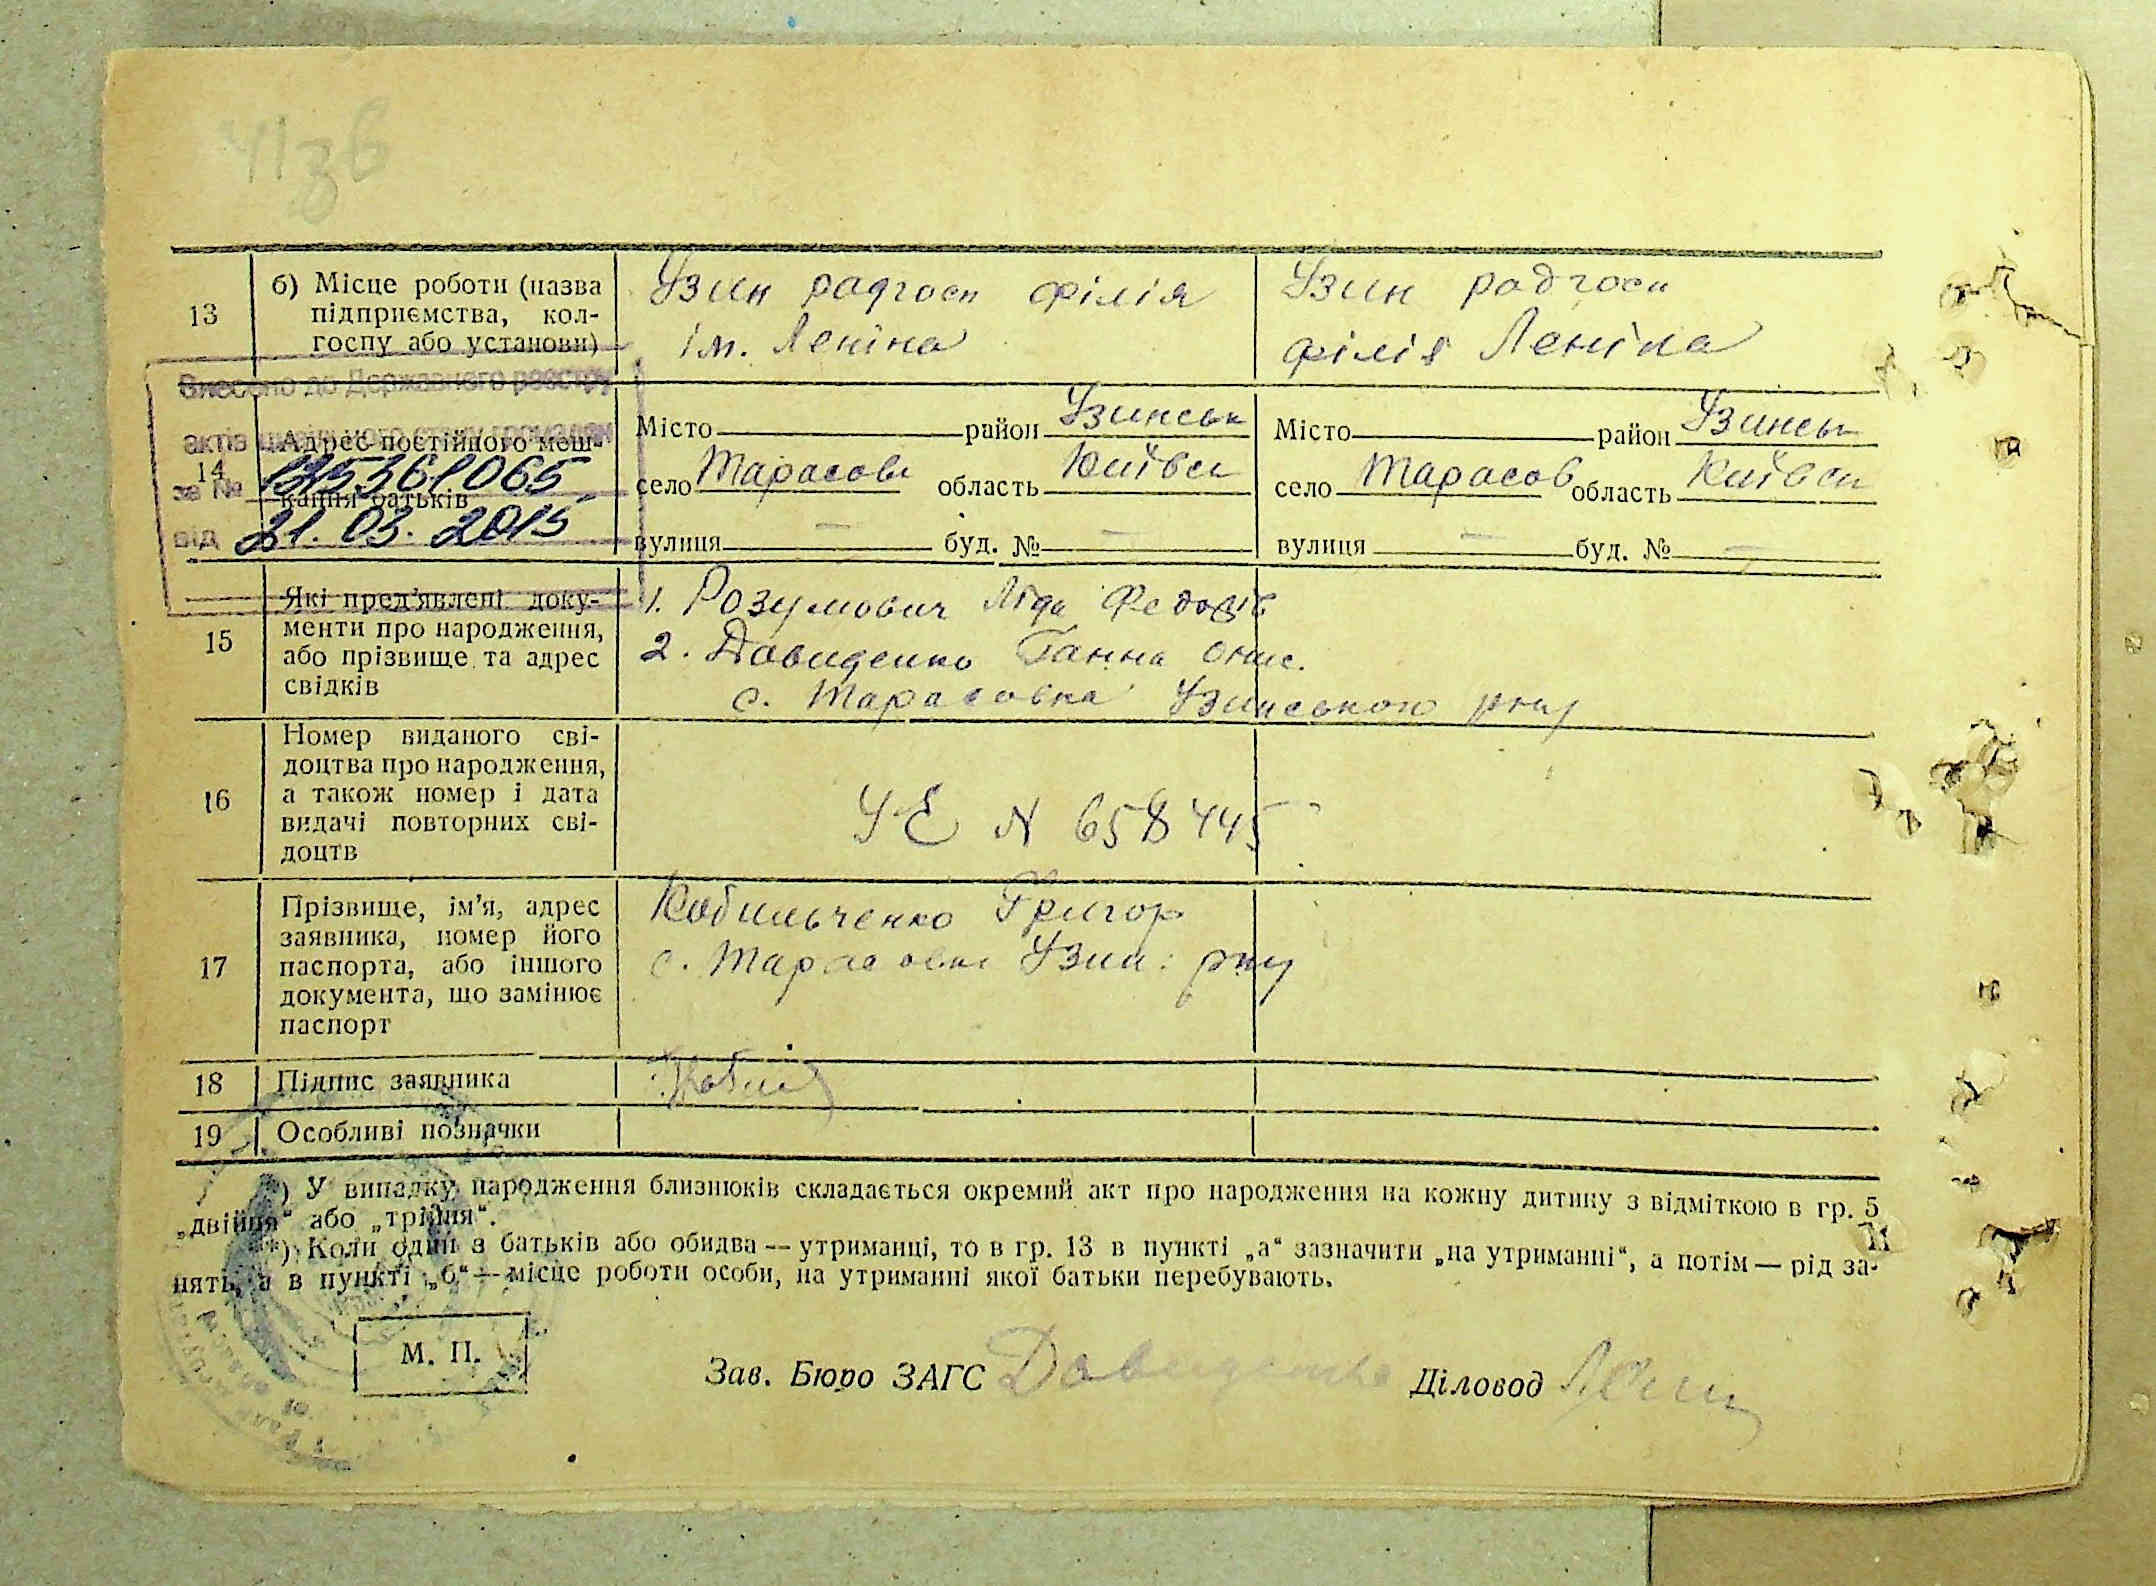 13
б) Місце роботи (назва
підприємства, кол-
госпу або установи)
Узин радгосп філія
ім. Леніна
Узин радгосп
філія Леніна
Внесено до Державного реєстру
актів цивільного стану громадян
за № 125361065
від 21.03.2015
14
Адрес постійного меш-
кання батьків
Місто район Узинськ
село Тарасовк область Київськ
вулиця — буд. № —
Місто район Узинськ
село Тарасов область Київськ
вулиця — буд. № —
15
Які пред'явлені доку-
менти про народження,
або прізвище та адрес
свідків
1. Розумович Ліда Федорів
2. Давиденко Ганна Онис.
с. Тарасовка Узинського р-ну
16
Номер виданого сві-
доцтва про народження,
а також номер і дата
видачі повторних сві-
доцтв
УЕ N 658445
17
Прізвище, ім'я, адрес
заявника, номер його
паспорта, або іншого
документа, що замінює
паспорт
Кобильченко Григор
с. Тарасовка Узин. р-ну
18
Підпис заявника
19
Особливі позначки
*) У випадку народження близнюків складається окремий акт про народження на кожну дитину з відміткою в гр. 5
„двійня“ або „трійня“.
**) Коли один з батьків або обидва — утриманці, то в гр. 13 в пункті „а“ зазначити „на утриманні“, а потім — рід за-
нять, а в пункті „б“ — місце роботи особи, на утриманні якої батьки перебувають.
М. П.
Зав. Бюро ЗАГС Давиденко Діловод